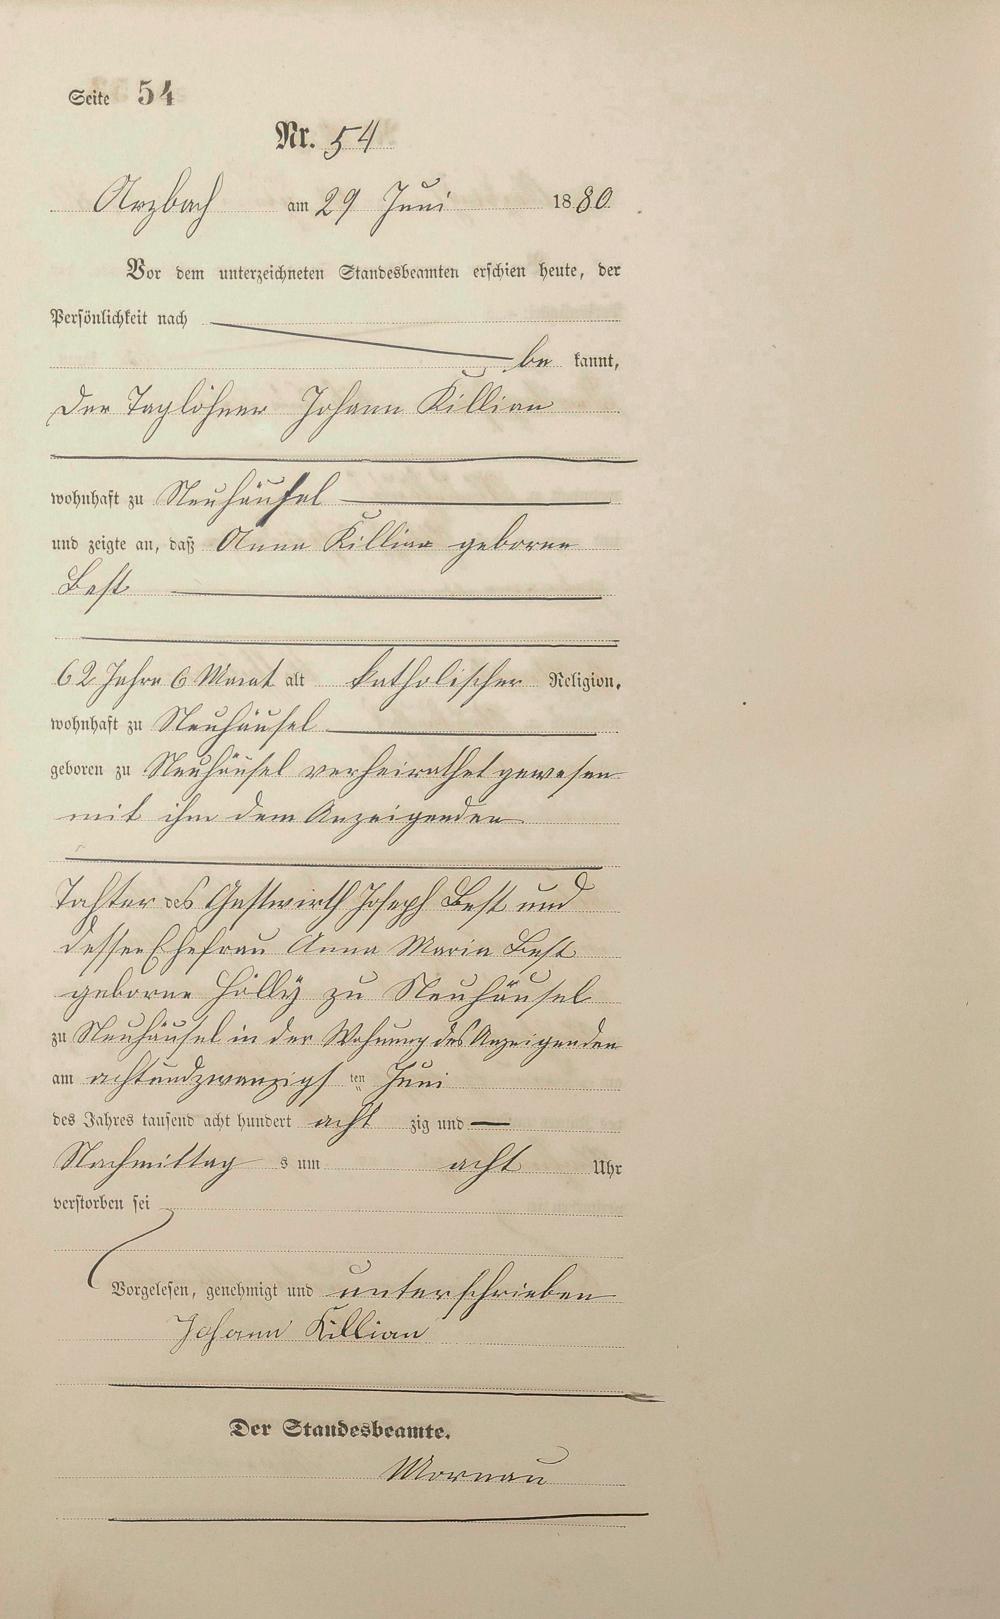 Seite 54
Nr. 54
Arzbach am 29 Juni 1880
Vor dem unterzeichneten Standesbeamten erschien heute, der
Persönlichkeit nach
be kannt,
der Taglöhner Johann Killian
wohnhaft zu Neuhäusel
und zeigte an, daß Anna Killian geborne
Best
62 Jahre 6 Monat alt katholischer Religion,
wohnhaft zu Neuhäusel
geboren zu Neuhäusel verheirathet gewesen
mit ihm dem Anzeigenden
Tochter des Gastwirth Joseph Best und
dessen Ehefrau Anna Maria Best
geborne Hölly zu Neuhäusel
zu Neuhäusel in der Wohnung des Anzeigenden
am achtundzwanzigs ten Juni
des Jahres tausend acht hundert acht zig und
Nachmittag s um acht Uhr
verstorben sei
Vorgelesen, genehmigt und unterschrieben
Johann Killian
Der Standesbeamte.
Mornau